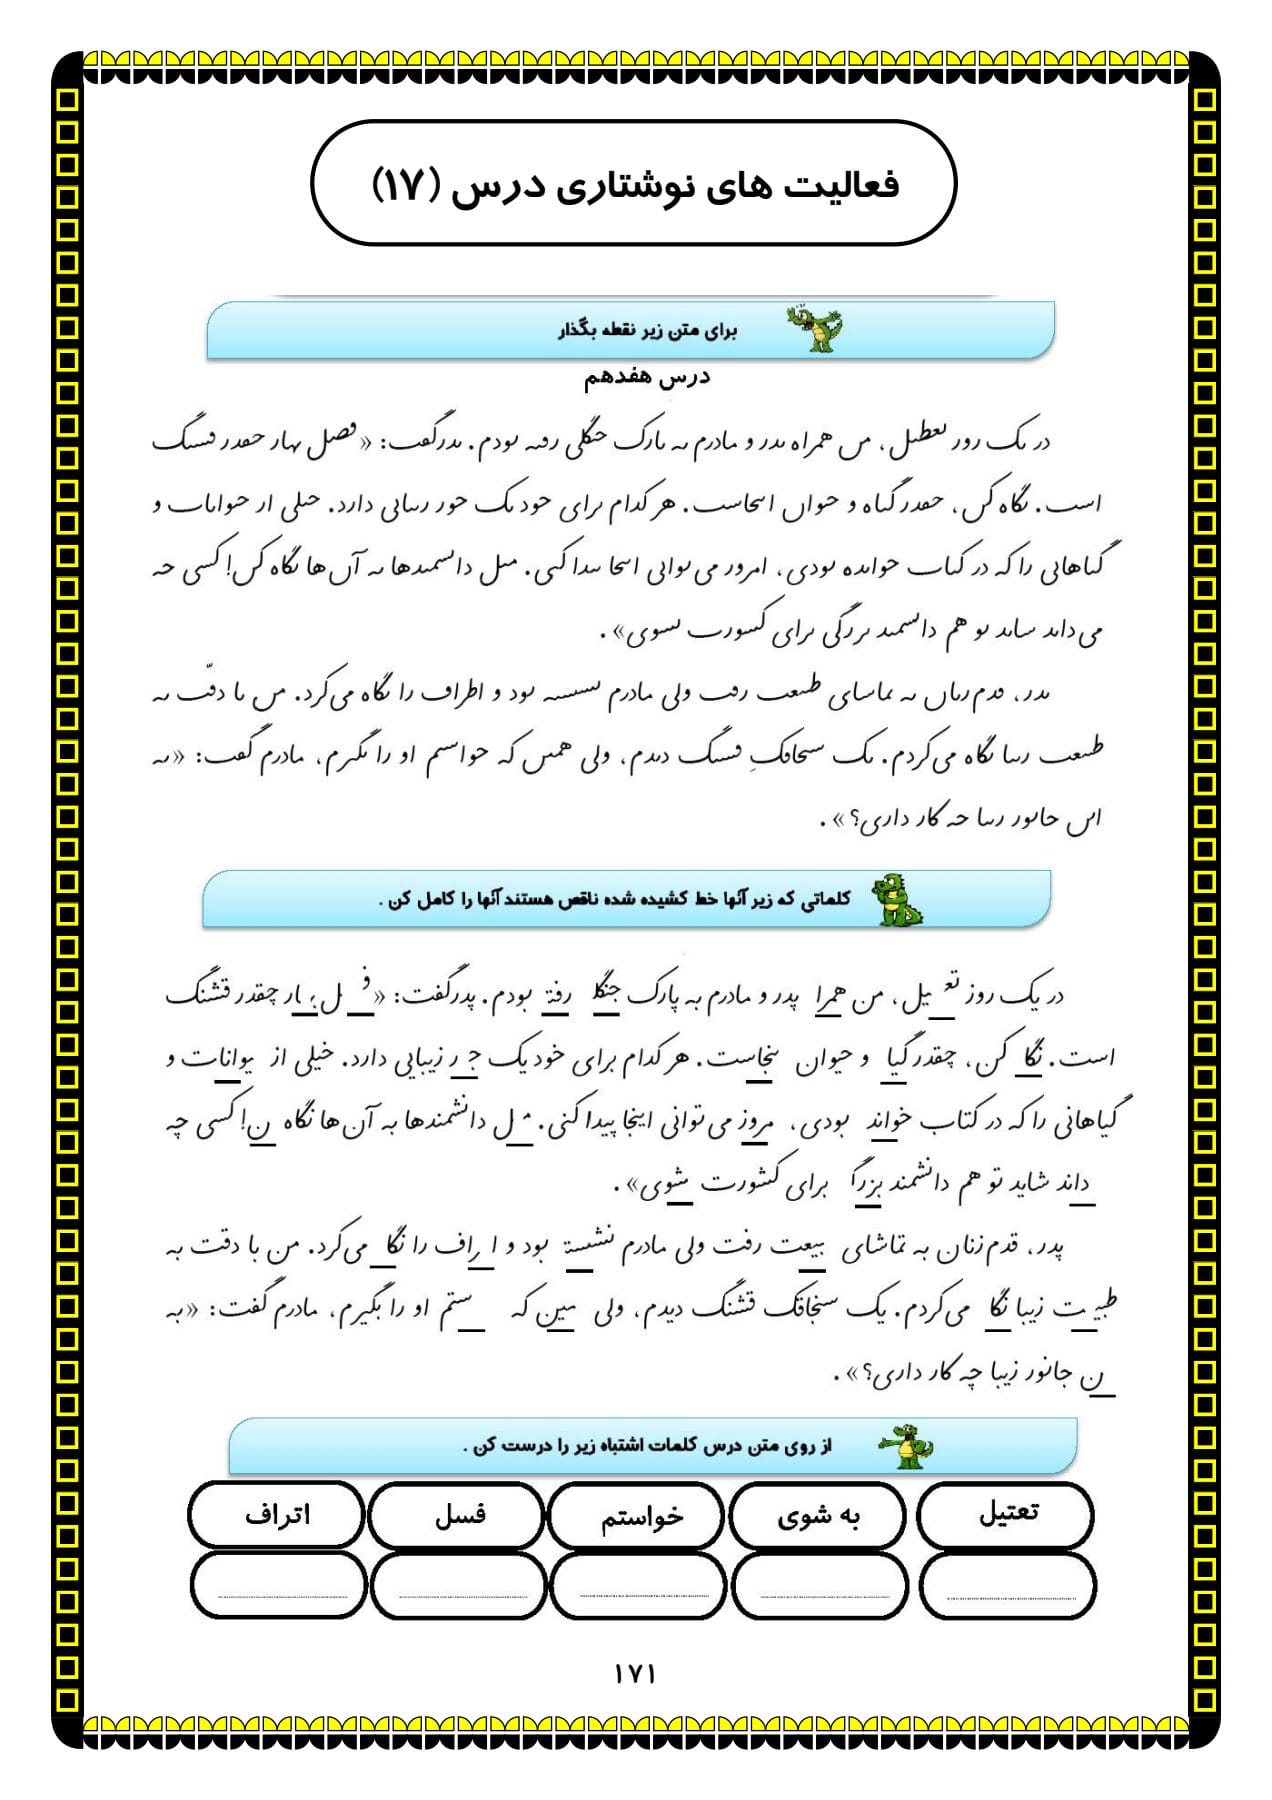 فعالیت های نوشتاری درس (۱۷)
برای متن زیر نقطه بگذار
درس هفدهم
در ٮک رور ٮعطٮل، مں همراه ٮدر و مادرم ٮه ٮارک حٮگلی رڡٮه ٮودم. ٮدرگڡٮ: «ڡصل ٮهار حڡدر ڡسٮگ
اسٮ. ٮگاه کں، حڡدر گٮاه و حٮواں اٮٮحاسٮ. هر کدام ٮرای خود ٮک حور رٮٮاٮی دارد. حٮلی ار حٮواٮاٮ و
گٮاهاٮی را که در کٮاٮ حواٮده ٮودی، امرور می ٮواٮی اٮٮحا ٮٮدا کٮی. مٮل داٮسمٮدها ٮه آں ها ٮگاه کں! کسی حه
می داٮد ساٮد ٮو هم داٮسمٮد ٮررگی ٮرای کسورٮ ٮسوی».
ٮدر، ڡدم رٮاں ٮه ٮماسای طٮٮعٮ رڡٮ ولی مادرم ٮسسٮه ٮود و اطراڡ را ٮگاه می کرد. مں ٮا دڡّٮ ٮه
طٮٮعٮ رٮٮا ٮگاه می کردم. ٮک سٮحاڡکِ ڡسٮگ دٮدم، ولی همٮں که حواسٮم او را ٮگٮرم، مادرم گڡٮ: «ٮه
اٮں حاٮور رٮٮا حه کار داری؟».
کلماتی که زیر آنها خط کشیده شده ناقص هستند آنها را کامل کن .
در یک روز تعـ ـیل، من همرا پدر و مادرم به پارک جنگلـ رفتـ بودم. پدرگفت: «فـ ـل بـ ـار چقدر قشنگ
است. نگا کن، چقدر گیا و حیوان ـنجاست. هر کدام برای خود یک جـ ر زیبایی دارد. خیلی از ـیوانات و
گیاهانی را که در کتاب خواند بودی، مروز می توانی اینجا پیدا کنی. مـ ـل دانشمندها به آن ها نگاه ـن! کسی چه
داند شاید تو هم دانشمند بزرگـ برای کشورت شوی».
پدر، قدم زنان به تماشای ـبیعت رفت ولی مادرم نشستـ بود و ا ـراف را نگا می کرد. من با دقت به
طبیـ ـت زیبا نگا می کردم. یک سنجاقک قشنگ دیدم، ولی ـمین که ـستم او را بگیرم، مادرم گفت: «به
ـن جانور زیبا چه کار داری؟».
از روی متن درس کلمات اشتباه زیر را درست کن .
تعتیل به شوی خواستم فسل اتراف
۱۷۱